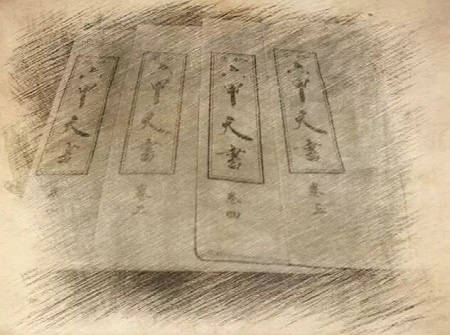 六甲天書
六甲天書
卷二
六甲天書
卷四
六甲天書
卷三